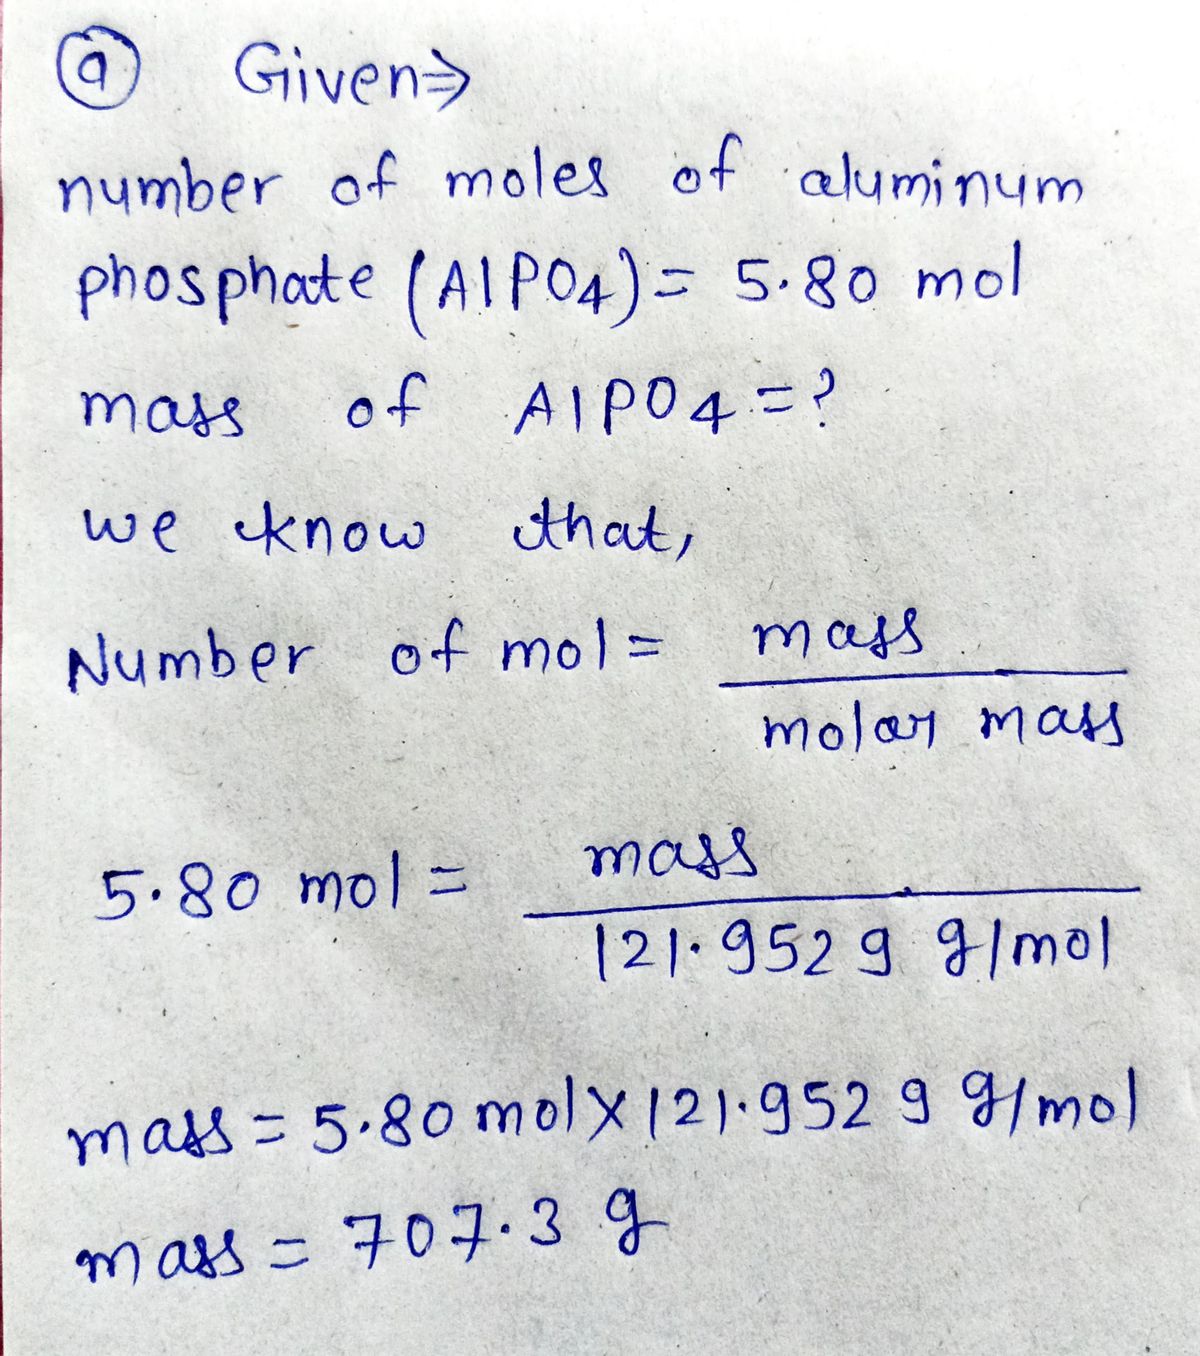 (a) Given⇒
number of moles of aluminum
phosphate (AlPO4) = 5.80 mol
mass of AlPO4 = ?
we know that,
Number of mol = mass
molar mass
5.80 mol = mass
121.9529 g/mol
mass = 5.80 mol × 121.9529 g/mol
mass = 707.3 g